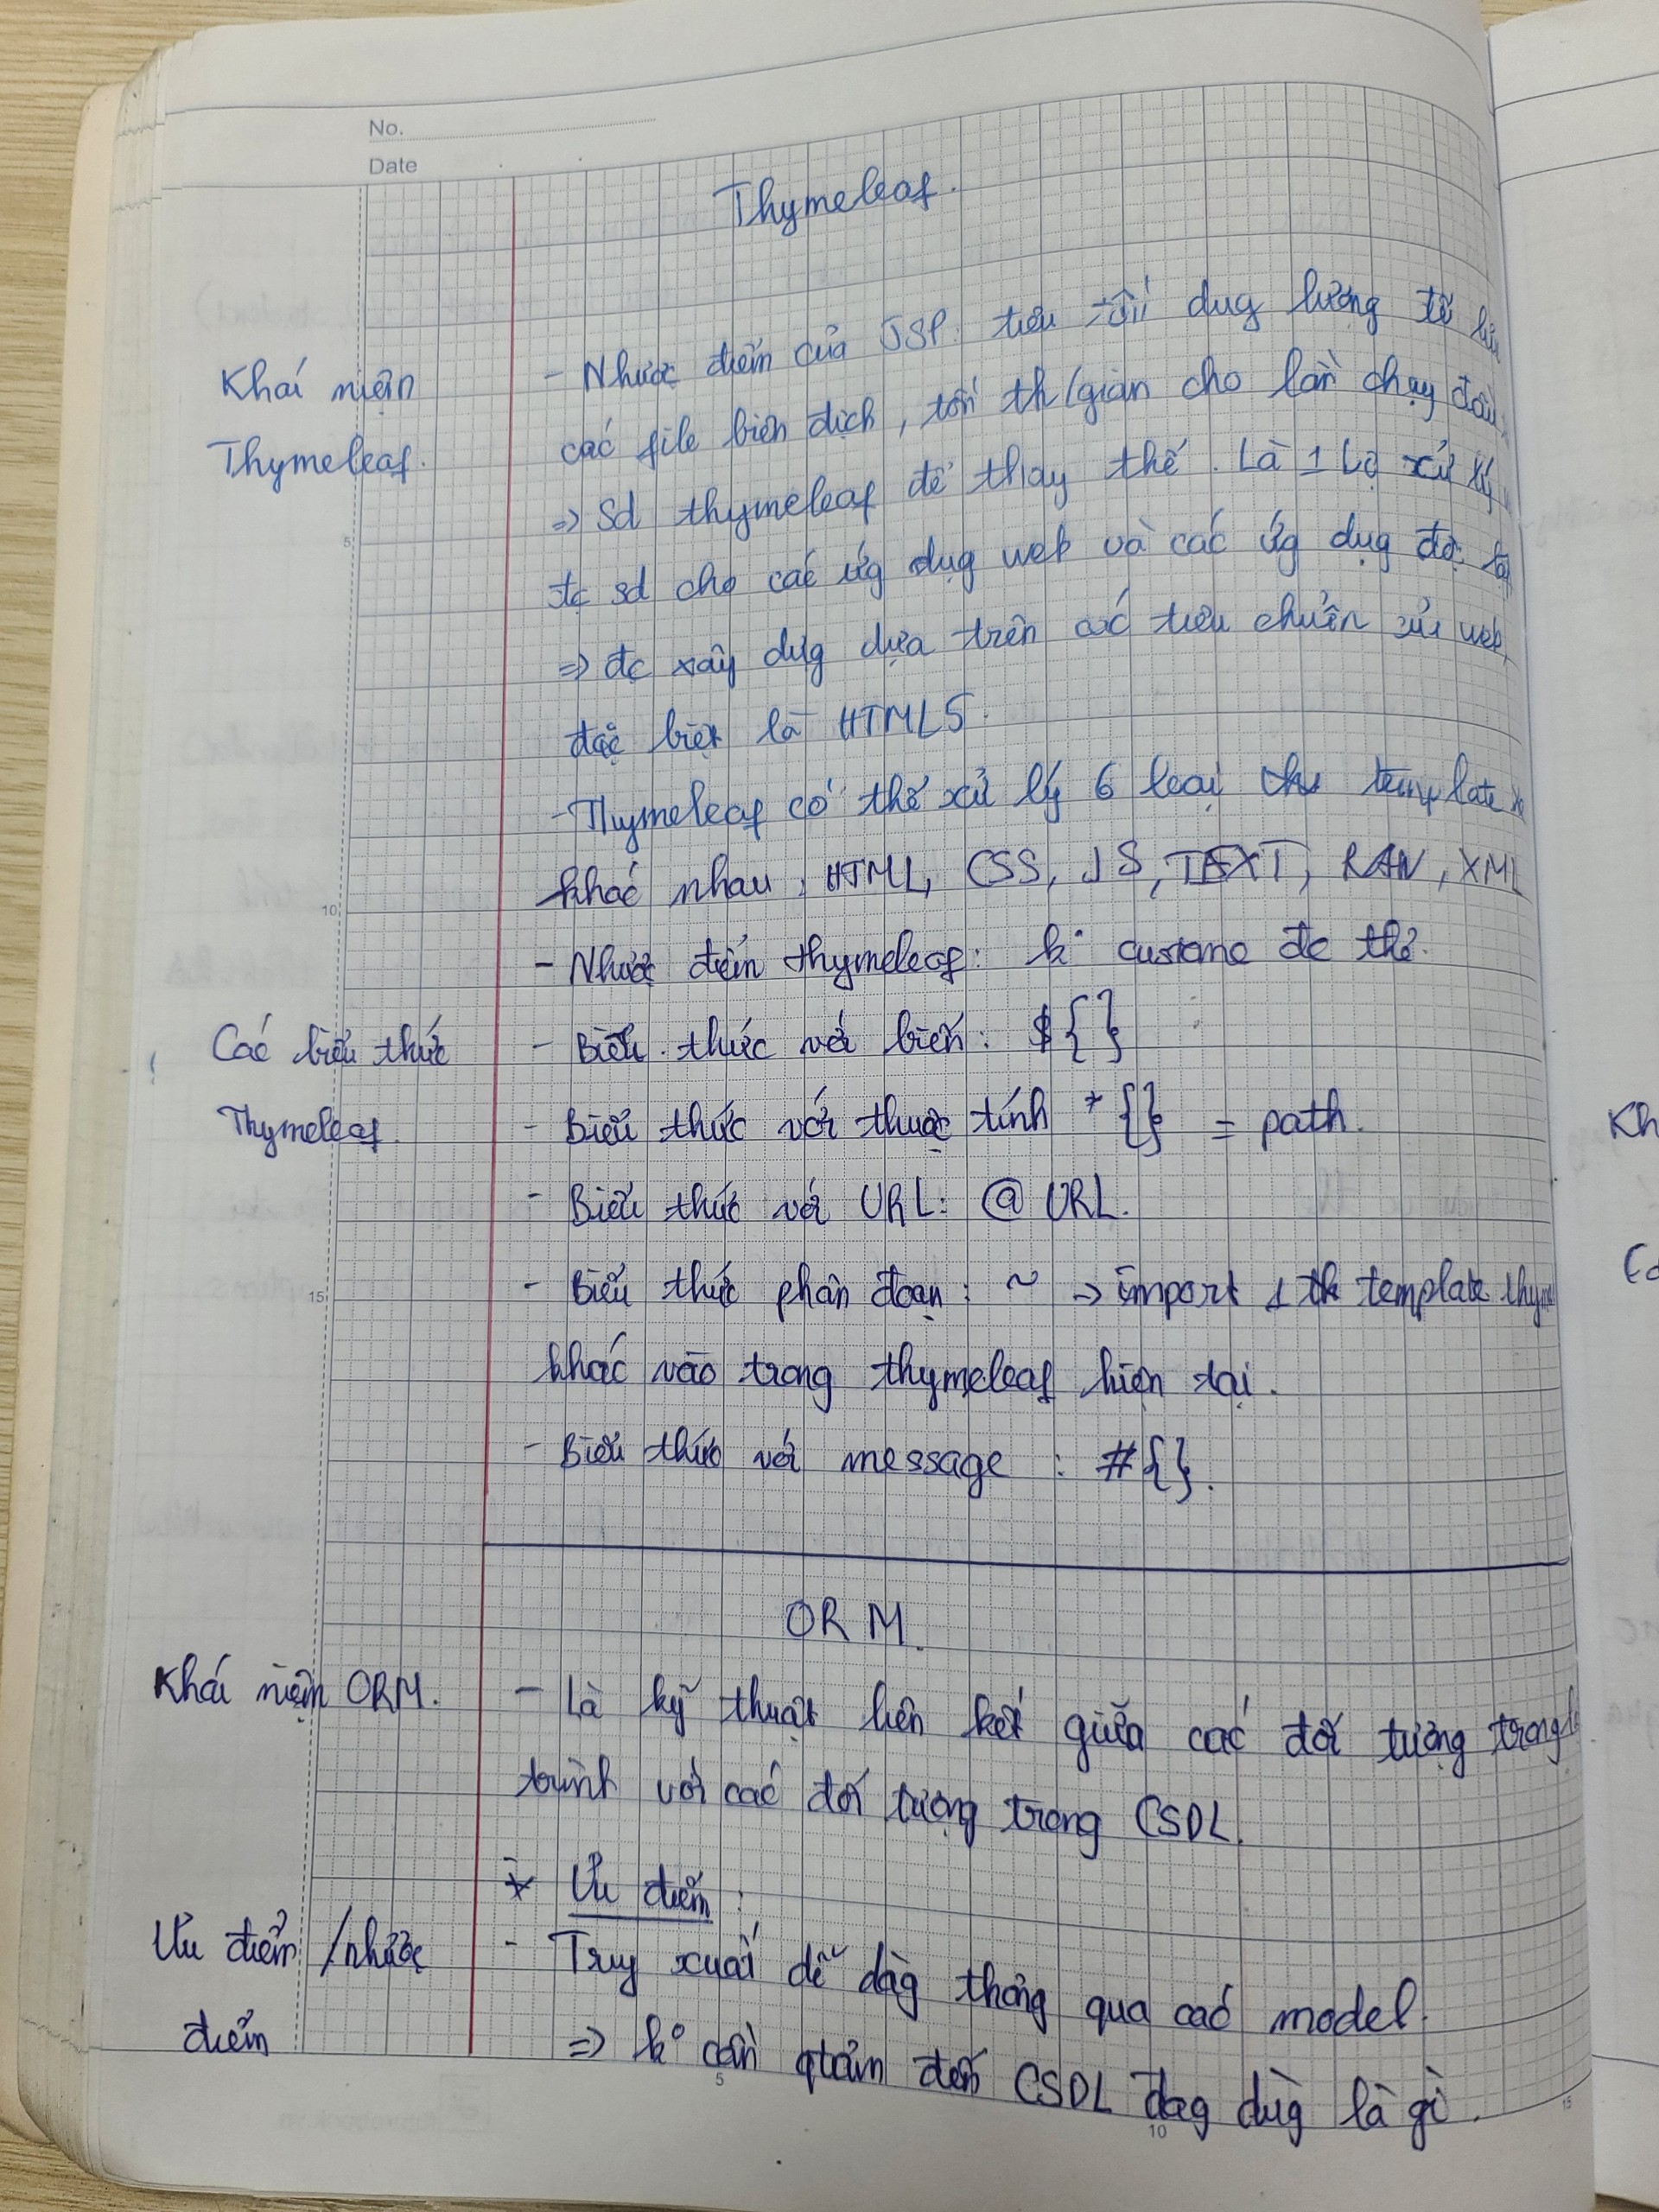 No.
Date
Thymeleaf.
Khái niệm
Thymeleaf.
- Nhược điểm của JSP: tiêu tốn dug lượng để
các file biên dịch, tốn th/gian cho lần chạy đầu
=> sd thymeleaf để thay thế. Là 1 bộ xử lý
đc sd cho các ứg dụg web và các ứg dụg độc lập
=> đc xây dựg dựa trên các tiêu chuẩn của web,
đặc biệt là HTML5.
- Thymeleaf có thể xử lý 6 loại template
khác nhau: HTML, CSS, JS, TEXT, RAW, XML
- Nhược điểm thymeleaf: k° custome đc thẻ.
Các biểu thức
Thymeleaf
- Biểu thức với biến: ${}
- Biểu thức với thuộc tính *{} = path.
- Biểu thức với URL: @ URL.
- Biểu thức phân đoạn: ~ -> import 1 tk template thyme
khác vào trong thymeleaf hiện tại.
- Biểu thức với message: #{}.
ORM.
Khái niệm ORM.
- Là kỹ thuật liên kết giữa các đối tượng trong
trình với các đối tượng trong CSDL.
Ưu điểm/nhược
điểm
* Ưu điểm:
- Truy xuất dễ dàg thông qua các model.
=> k° cần qtâm đến CSDL đag dùg là gì.
Kh
5
10
15
5
10
15